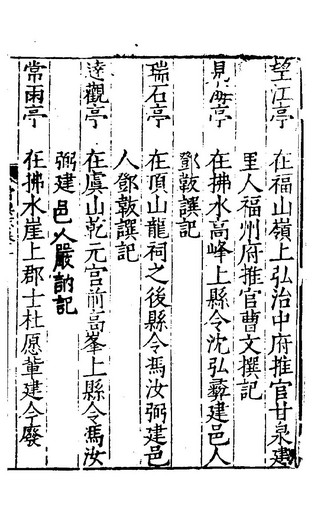 望江亭 在福山嶺上弘治中府推官甘泉建
里人福州府推官曹文撰記
見海亭 在拂水高峰上縣令沈弘彝建邑人
鄧韍譔記
瑞石亭 在頂山龍祠之後縣令馮汝弼建邑
人鄧韍譔記
達觀亭 在虞山乾元宮前高峯上縣令馮汝
弼建 邑人嚴訥記
常雨亭 在拂水崖上郡士杜愿董建今廢